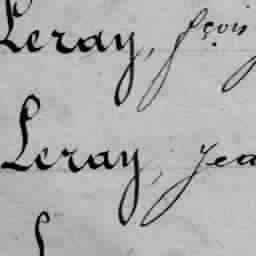 Leray, fçois
Leray, Jea